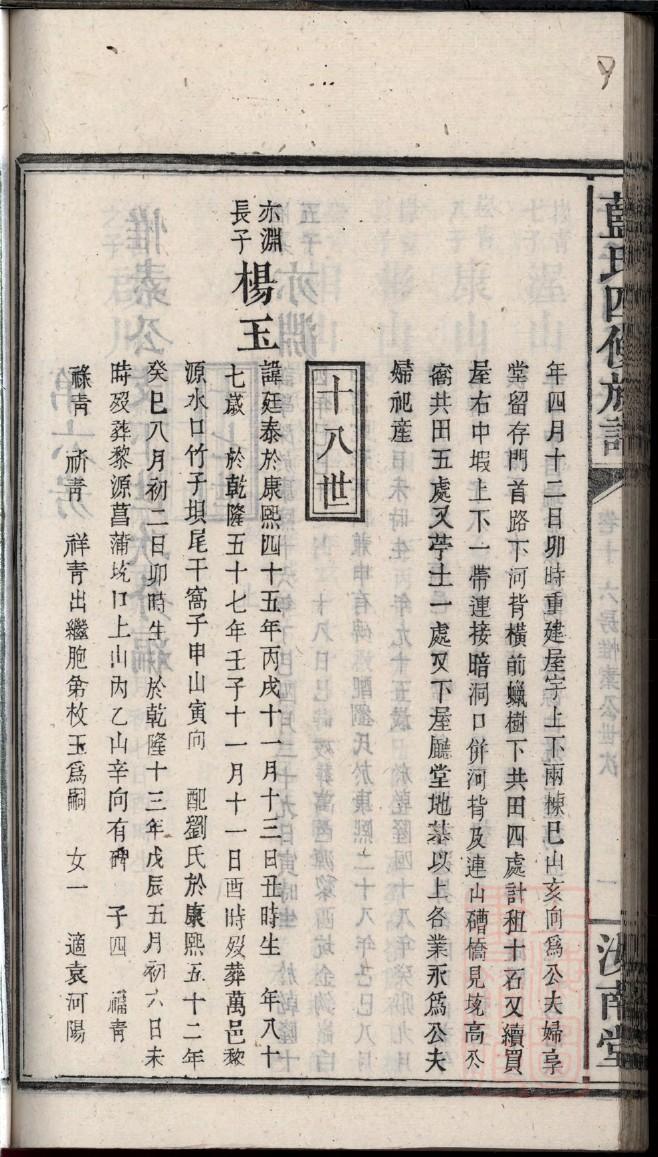 藍氏四修族譜
卷十 六房惟素公世次
一
汝南堂
年四月十二日卯時重建屋宇上下兩棟巳山亥向爲公夫婦享
堂留存門首路下河背橫前蠟樹下共田四處計租十石又續買
屋右中塅上下一帶連接暗洞口併河背及連山礌僑見垅高
窩共田五處又苧土一處又下屋廳堂地基以上各業永爲公夫
婦祀產
十八世
亦淵
長子
楊玉
諱廷泰於康熙四十五年丙戌十一月十三日丑時生 年八十
七歲 於乾隆五十七年壬子十一月十一日酉時歿葬萬邑黎
源水口竹子坝尾干窩子申山寅向 配劉氏於康熙五十二年
癸巳八月初二日卯時生 於乾隆十三年戊辰五月初六日未
時歿葬黎源菖蒲坑口上山內乙山辛向有碑 子四 禧青
祿青 祈青 祥青出繼胞弟枚玉爲嗣 女一 適袁河陽